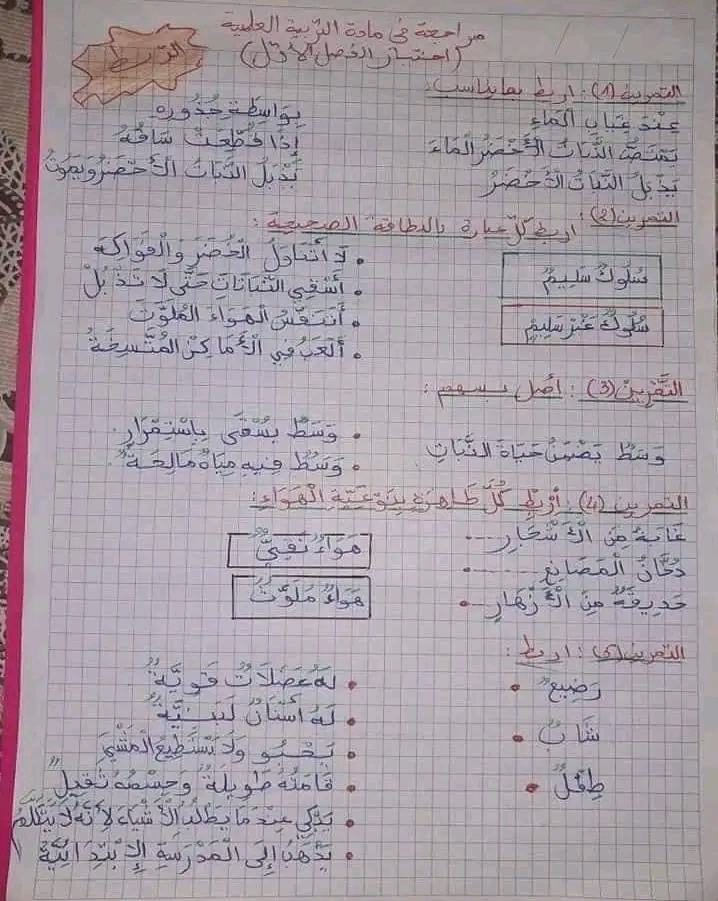 مراجعة في مادة التربية العلمية
(اختبار الفصل الأول)
الربط
التمرين (1): اربط بما يناسب:
عِنْدَ غِيَابِ الْمَاءِ
بِوَاسِطَةِ جُذُورِهِ
يَمْتَصُّ النَّبَاتُ الْأَخْضَرُ الْمَاءَ
إِذَا قُطِّعَتْ سَاقُهُ
يَذْبُلُ النَّبَاتُ الْأَخْضَرُ
يَذْبُلُ النَّبَاتُ الْأَخْضَرُ وَيَمُوتُ
التمرين (2): اربط كلّ عبارة بالبطاقة الصحيحة:
سُلُوكٌ سَلِيمٌ
سُلُوكٌ غَيْرُ سَلِيمٍ
لَا أَتَنَاوَلُ الْخُضَرَ وَالْفَوَاكِهَ
أَسْقِي النَّبَاتَاتِ حَتَّى لَا تَذْبُلَ
أَتَنَفَّسُ الْهَوَاءَ الْمُلَوَّثَ
أَلْعَبُ فِي الْأَمَاكِنِ الْمُتَّسِخَةِ
التَّمْرِينُ (3): أصل بسهم:
وَسَطٌ يَضْمَنُ حَيَاةَ النَّبَاتِ
وَسَطٌ يُسْقَى بِاسْتِمْرَارٍ
وَسَطٌ فِيهِ مِيَاهٌ مَالِحَةٌ
التمرين (4): أَرْبِطُ كُلَّ ظَاهِرَةٍ بِنَوْعِيَّةِ الْهَوَاءِ:
غَابَةٌ مِنَ الْأَشْجَارِ
دُخَّانُ الْمَصَانِعِ
حَدِيقَةٌ مِنَ الْأَزْهَارِ
هَوَاءٌ نَقِيٌّ
هَوَاءٌ مُلَوَّثٌ
التمرين (5): اربط:
رَضِيعٌ
شَابٌّ
طِفْلٌ
لَهُ عَضَلَاتٌ قَوِيَّةٌ
لَهُ أَسْنَانٌ لَبَنِيَّةٌ
يَحْبُو وَلَا يَسْتَطِيعُ الْمَشْيَ
قَامَتُهُ طَوِيلَةٌ وَجِسْمُهُ ثَقِيلٌ
يَبْكِي عِنْدَمَا يَطْلُبُ الْأَشْيَاءَ لِأَنَّهُ لَا يَتَكَلَّمُ
يَذْهَبُ إِلَى الْمَدْرَسَةِ الْإِبْتِدَائِيَّةِ